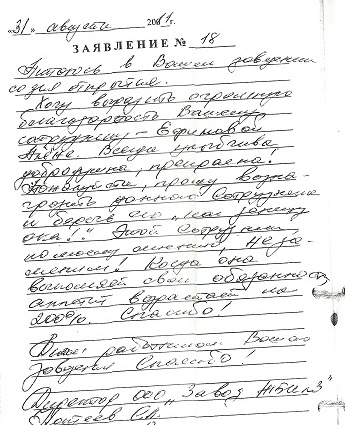 «31» августа 2011г.
ЗАЯВЛЕНИЕ № 18
Питаюсь в Вашем заведении
со дня открытия.
Хочу выразить огромную
благодарность Вашему
сотруднику – Ефимовой
Алёне. Всегда улыбчива,
добродушна, прекрасна!
Пожалуйста, прошу возна-
градить данного сотрудника
и беречь его „как зеницу
ока!“ Этот сотрудник,
по моему мнению, неза-
меним! Когда она
выполняет свои обязанности
аппетит возрастает на
200%. Спасибо!
Всем работникам Вашего
заведения Спасибо!
Директор ООО „Завод ЖБИ